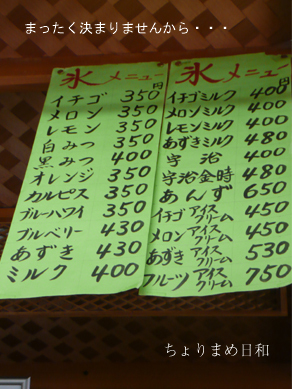 まったく決まりませんから・・・
氷メニュー
円
イチゴ 350
メロン 350
レモン 350
白みつ 350
黒みつ 400
オレンジ 350
カルピス 350
ブルーハワイ 350
ブルベリー 430
あずき 430
ミルク 400
氷メニュー
円
イチゴミルク 400
メロンミルク 400
レモンミルク 400
あずきミルク 480
宇治 400
宇治金時 480
あんず 650
イチゴアイスクリーム 450
メロンアイスクリーム 450
あずきアイスクリーム 530
フルーツアイスクリーム 750
ちょりまめ日和